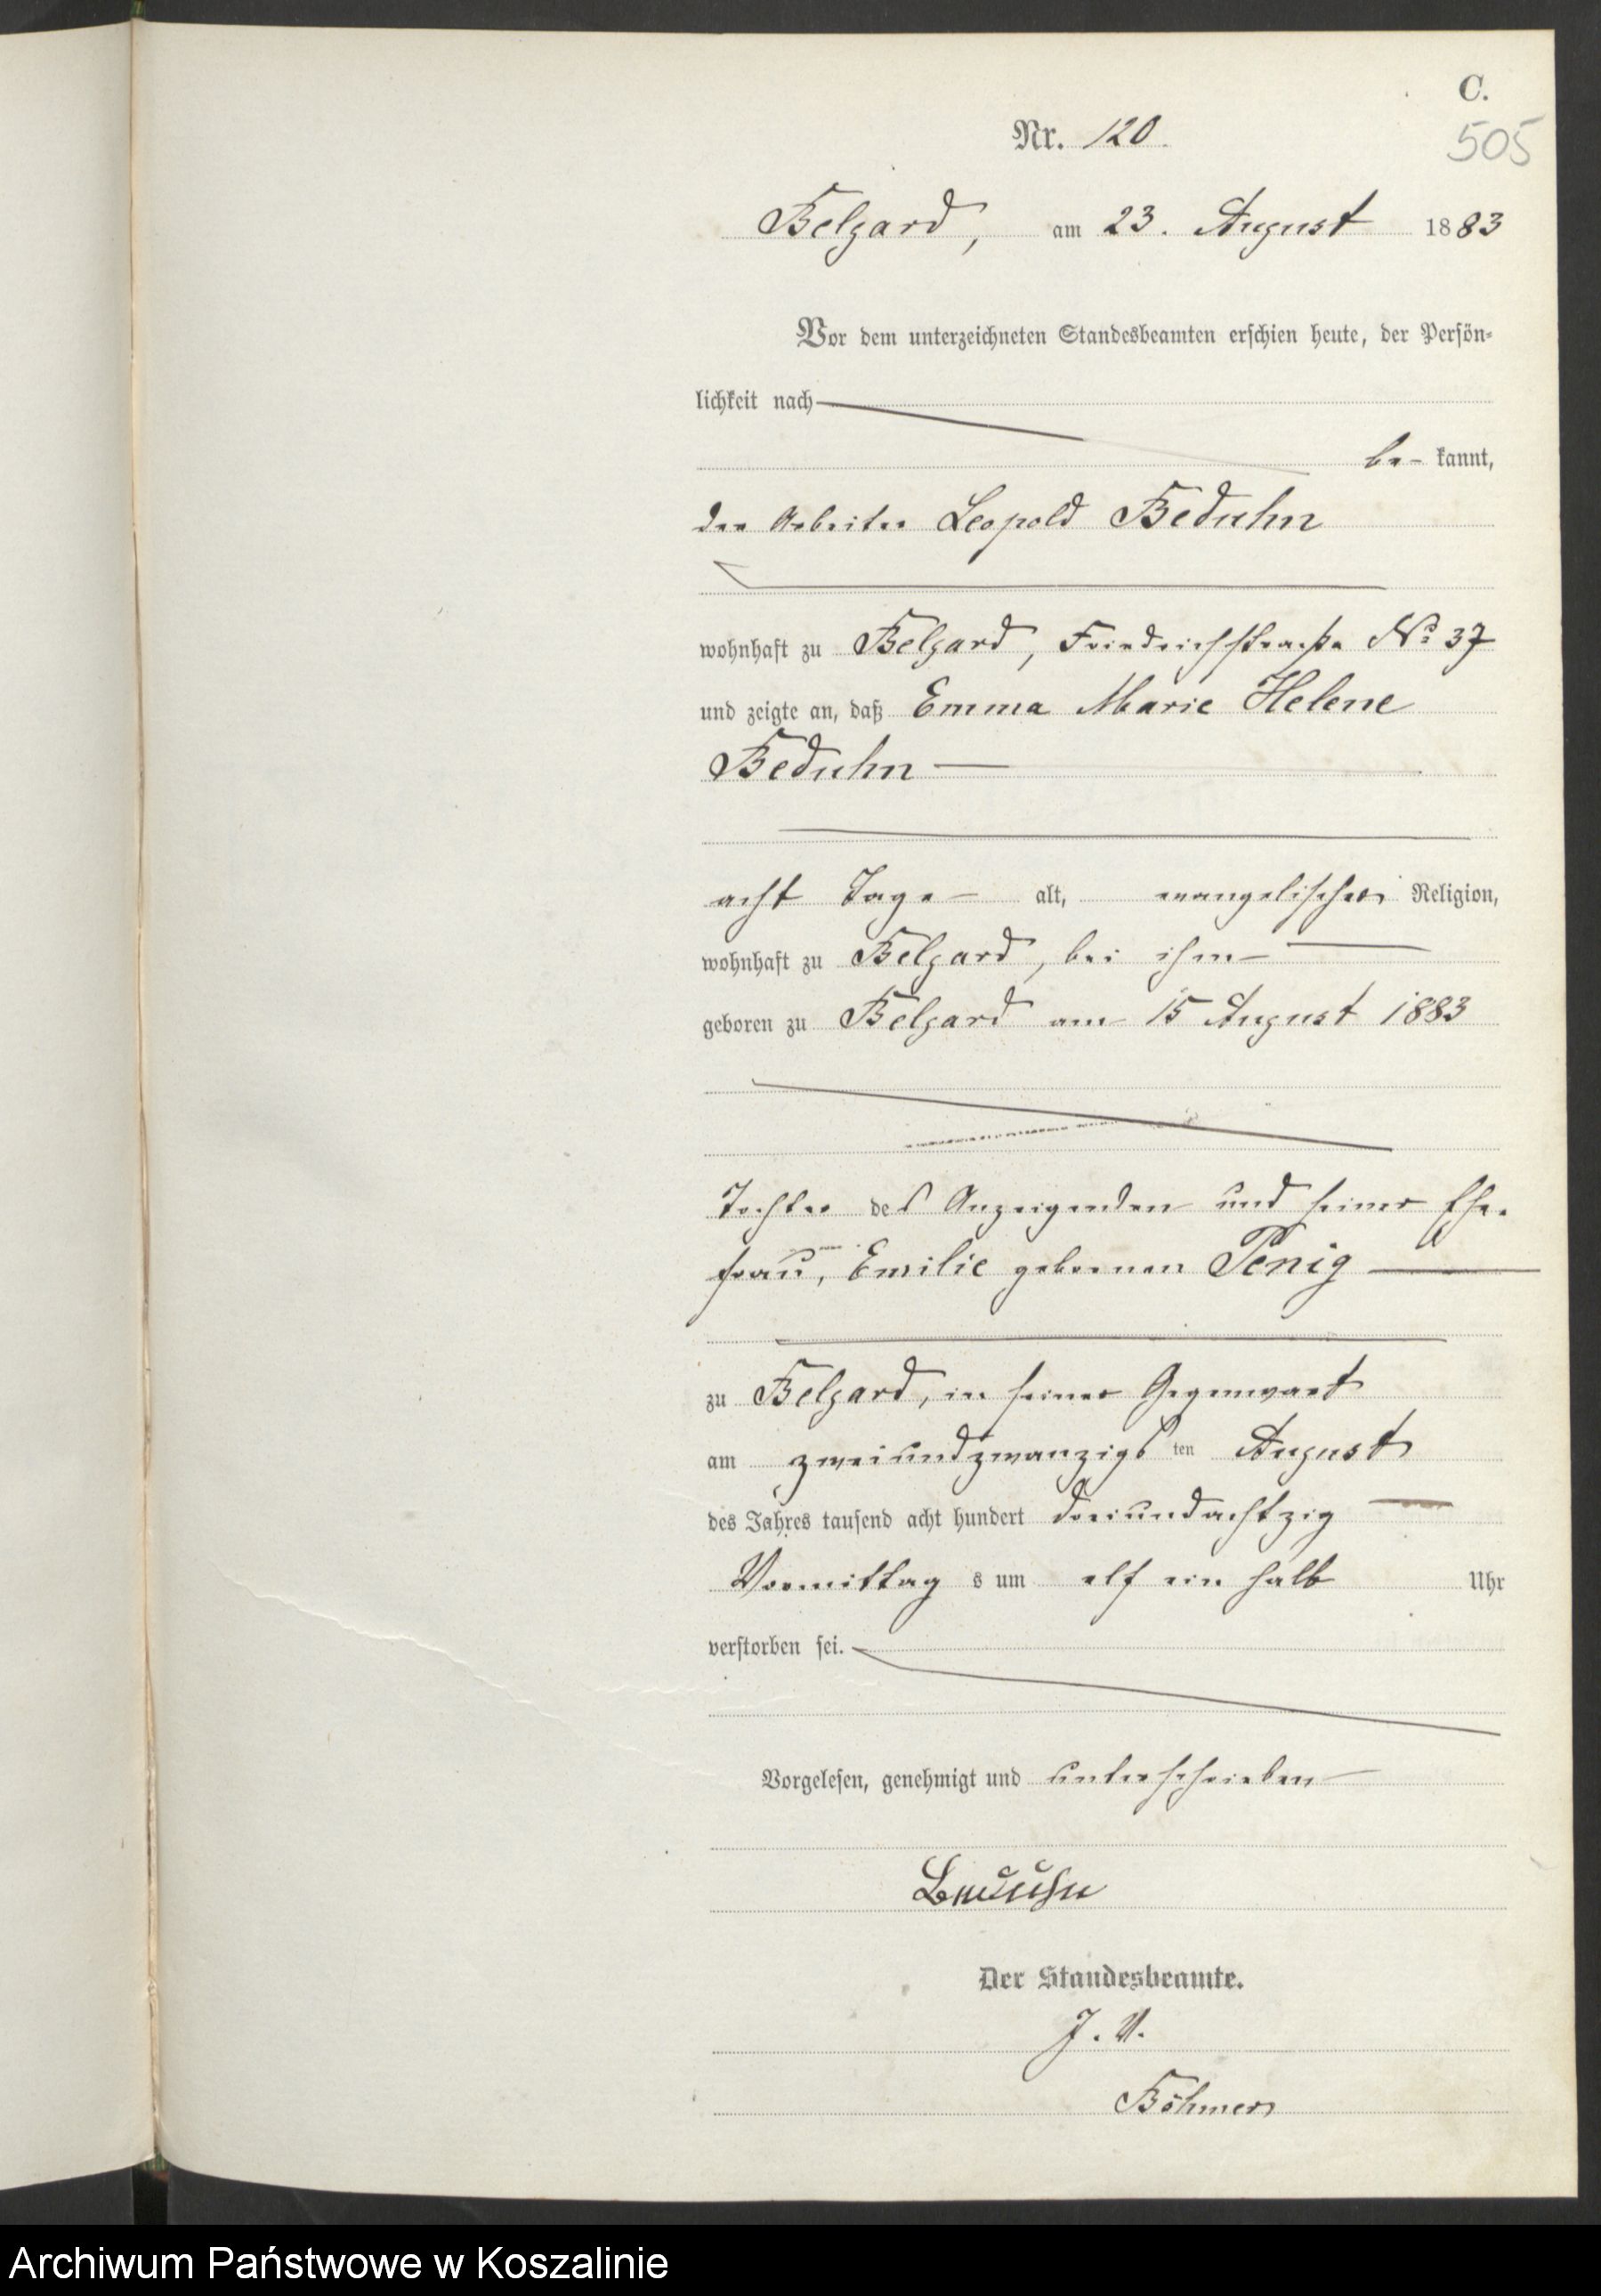 C.
505
Nr. 120.
Belgard, am 23. August 1883
Vor dem unterzeichneten Standesbeamten erschien heute, der Persön-
lichkeit nach
be- kannt,
der Arbeiter Leopold Beduhn
wohnhaft zu Belgard, Friedrichstraße No 37
und zeigte an, daß Emma Marie Helene
Beduhn
acht Tage alt, evangelischer Religion,
wohnhaft zu Belgard, bei ihm
geboren zu Belgard am 15 August 1883
Tochter des Anzeigenden und seiner Ehe-
frau, Emilie gebornen Penig
zu Belgard, in seiner Gegenwart
am zweiundzwanzigsten August
des Jahres tausend acht hundert dreiundachtzig
Vormittags um elf ein halb Uhr
verstorben sei.
Vorgelesen, genehmigt und unterschrieben
Beduhn
Der Standesbeamte.
J. V.
Böhmer
Archiwum Państwowe w Koszalinie